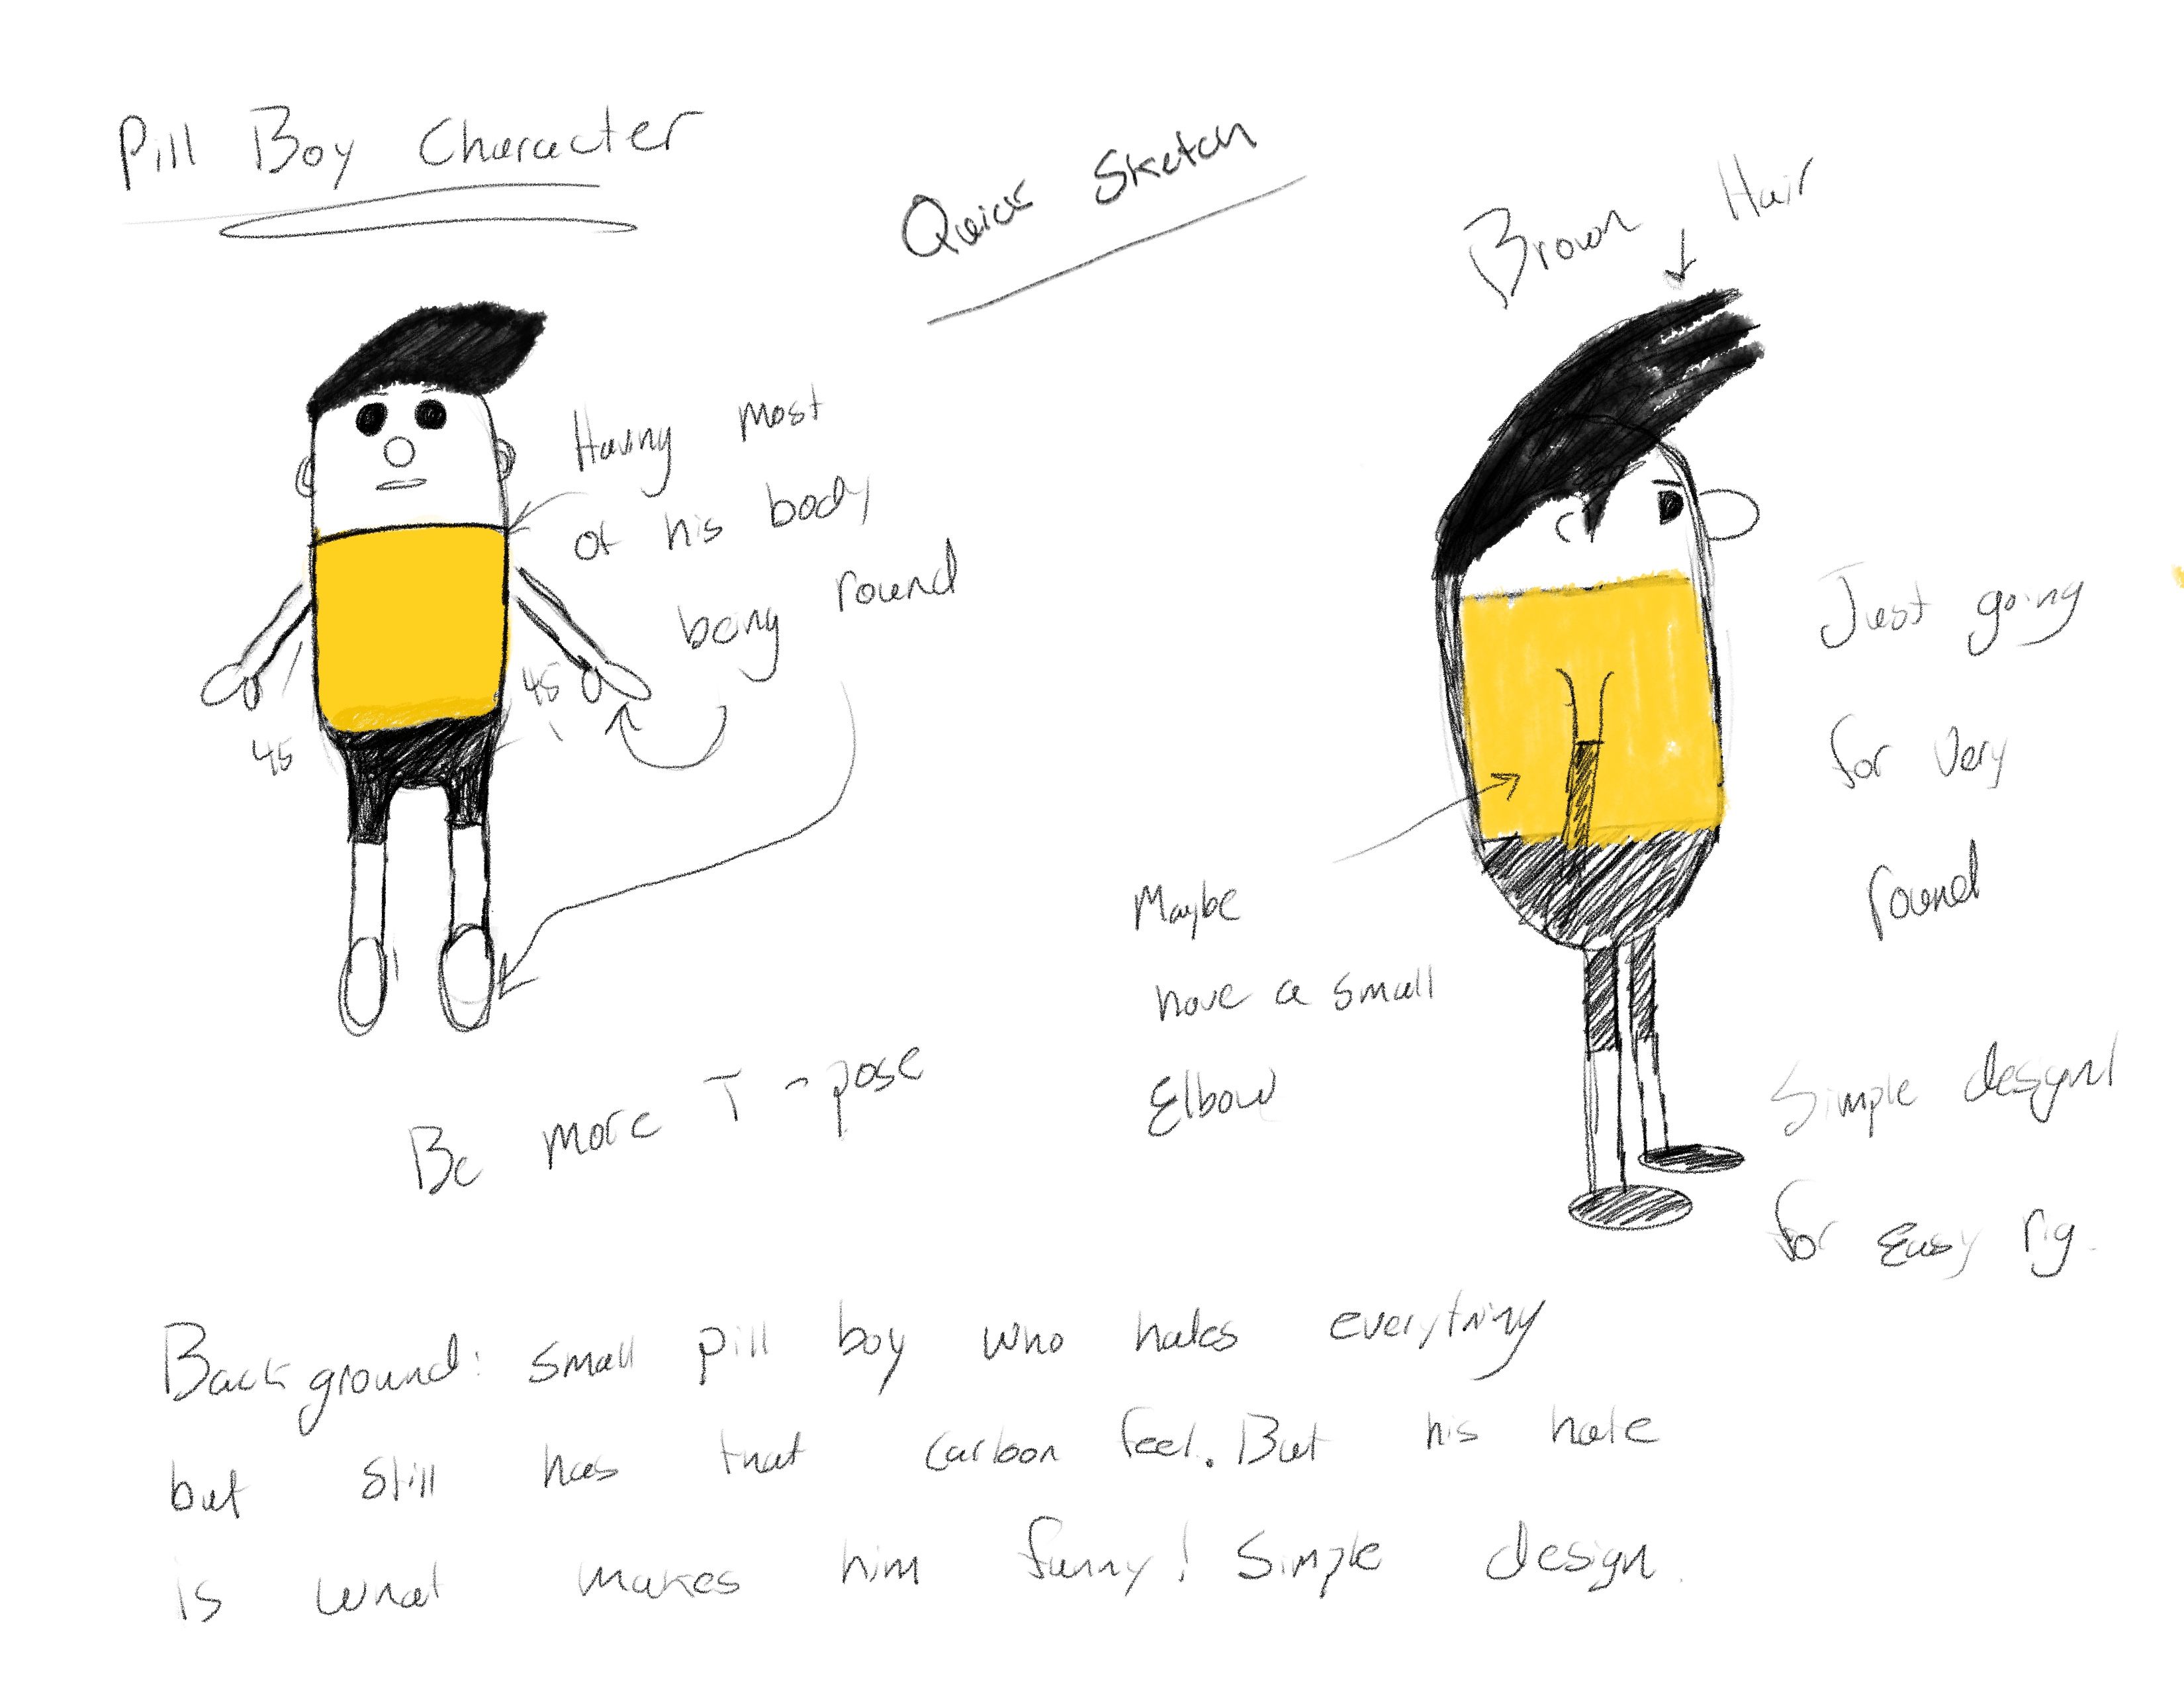 Pill Boy Character
Quick Sketch
Brown Hair
Having most
of his body
being round
45
45
Just going
for very
round
Maybe
have a small
Elbow
Be more T-pose
Simple design
for easy rig.
Background: small pill boy who hates everything
but still has that carboon feel. But his hate
is what makes him funny! Simple design.